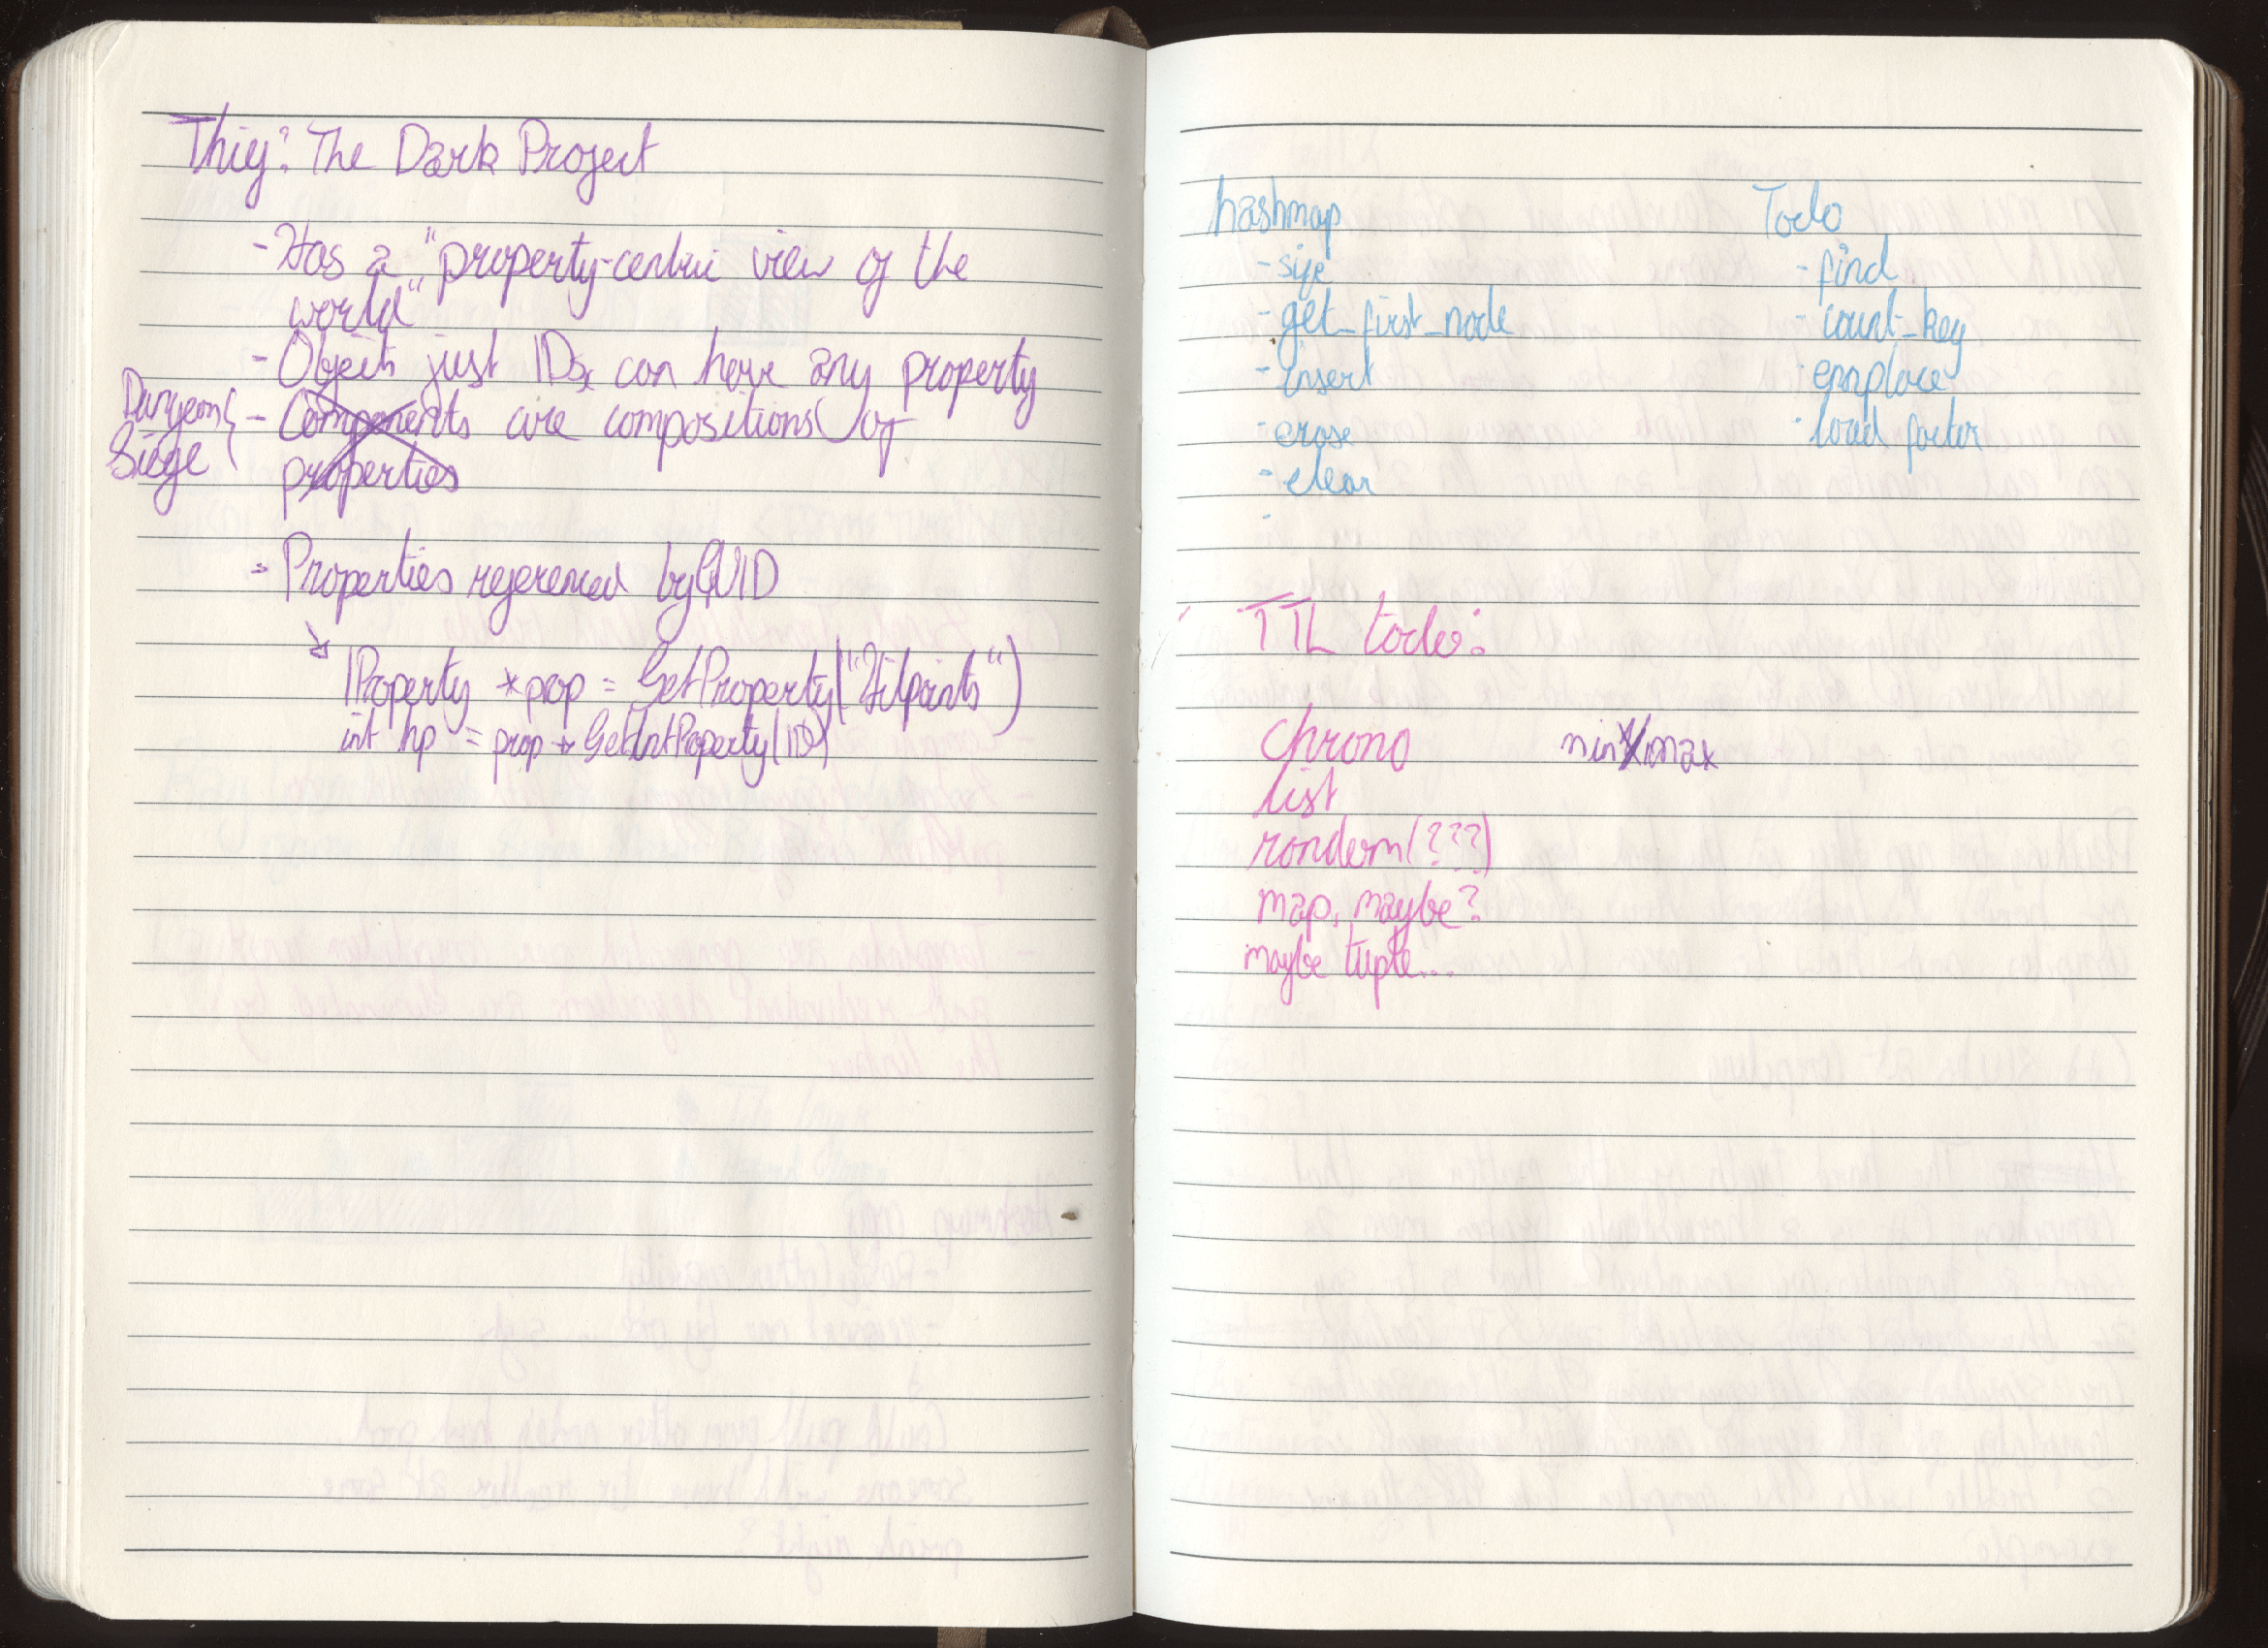 Thief: The Dark Project
- Has a "property-centric view of the
world"
- Objects just IDs, can have any property
Dungeon
Siege
- Components are compositions of
properties
- Properties referenced by GUID
↘
IProperty *prop = GetProperty("Hitpoints")
int hp = prop→GetIntProperty(ID)
hashmap
- size
- get_first_node
- insert
- erase
- clear
-
Todo
- find
- count_key
- emplace
- load factor
TTL todo:
chrono
min/max
list
random(???)
map, maybe?
maybe tuple...